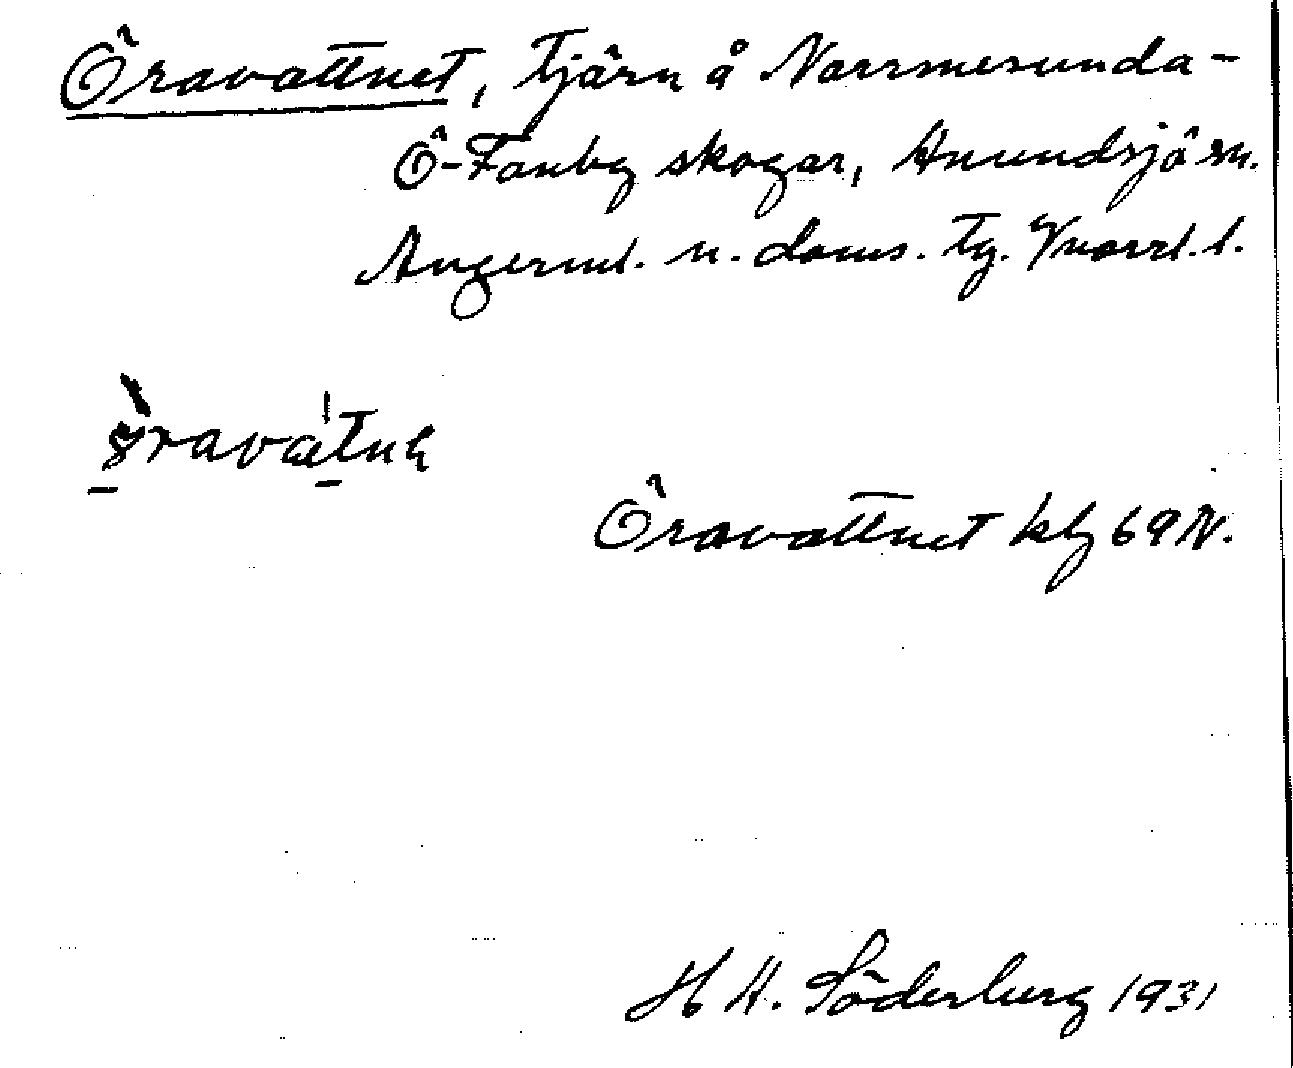 Öravattnet, tjärn å Norrmesunda-
Ö-Fanby skogar, Anundsjö sn.
Ångerml. n. doms. tg. Vnorrl. l.
Öravattnet kbg 69 N.
H H. Söderberg 1931